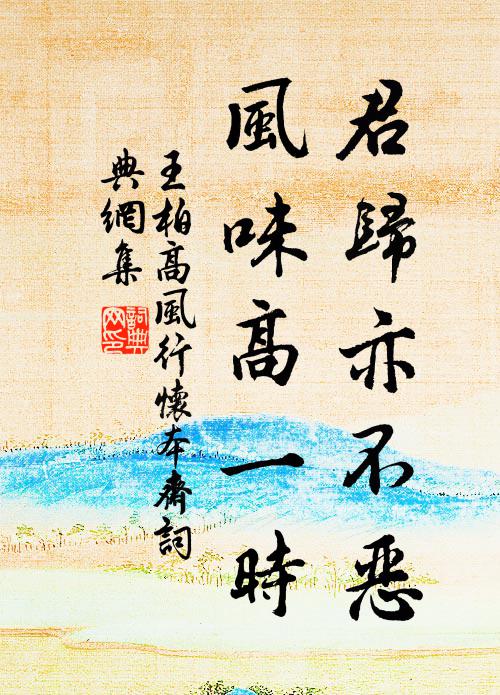 君歸亦不惡
風味高一時
王柏高風行懷本齋詞
典網集
詞典
网印